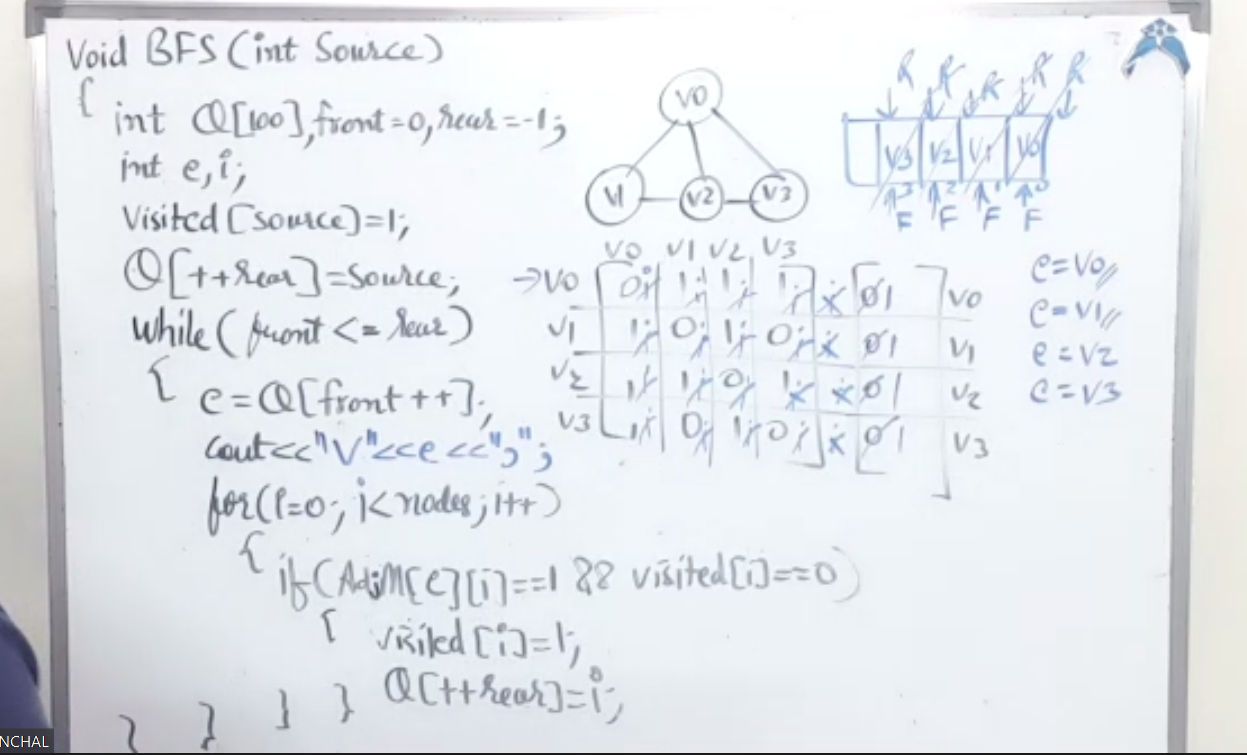 Void BFS (int Source)
{
int Q[100], front=0, rear=-1;
int e, i;
Visited [source]=1;
Q[++rear]=Source;
while (front <= rear)
{
e=Q[front++];
cout<<"V"<<e<<",";
for(i=0; i<nodes; i++)
{
if(AdjM[e][i]==1 && visited[i]==0)
{
visited [i]=1;
Q[++rear]=i;
} } } }
V0
V1 V2 V3
R R R R R
V3 V2 V1 V0
3 2 1 0
F F F F
V0 V1 V2 V3
→V0 0 1 1 1 0 1 V0
V1 1 0 1 0 0 1 V1
V2 1 1 0 1 0 1 V2
V3 1 0 1 0 0 1 V3
e=V0
e=V1
e=V2
e=V3
NCHAL